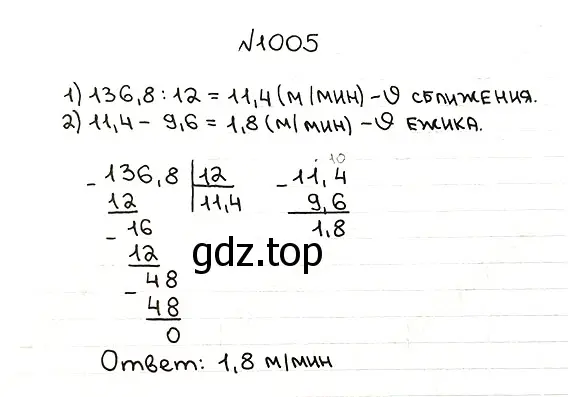 №1005
1) 136,8 : 12 = 11,4 (м/мин) – υ сближения.
2) 11,4 – 9,6 = 1,8 (м/мин) – υ ежика.
10
- 136,8 | 12 - 11,4
12 11,4 9,6
- 16 1,8
12
gdz.top
- 48
48
0
Ответ: 1,8 м/мин